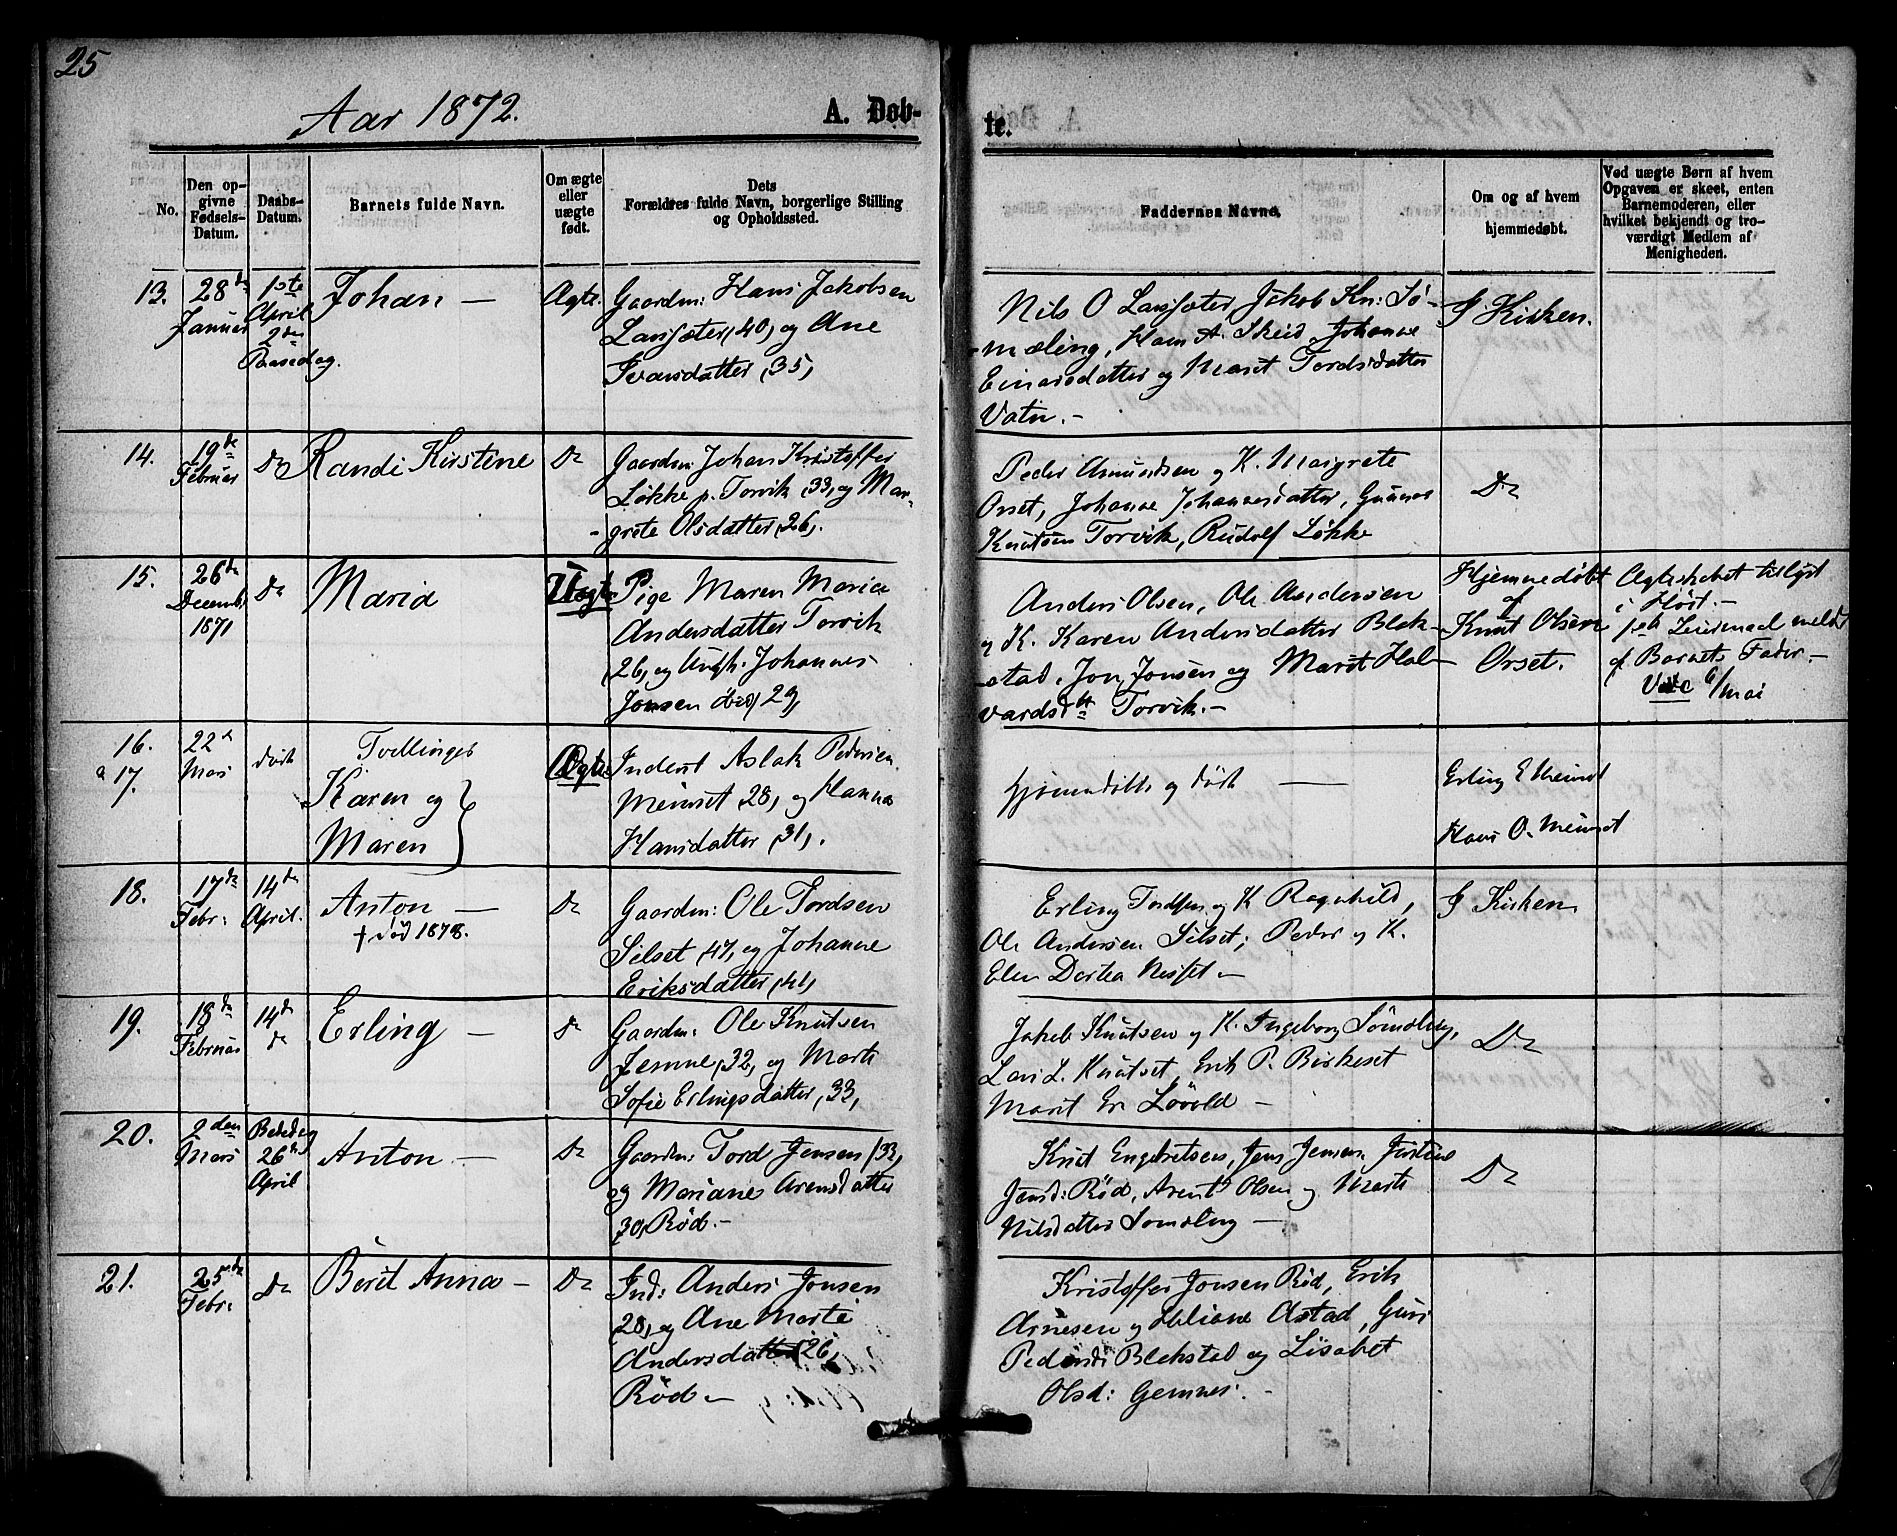 25
Aar 1872.
A. Døb-
te.
No.
Den op-
givne
Fødsels-
Datum.
Daabs-
Datum.
Barnets fulde Navn.
Om ægte
eller
uægte
født.
Dets
Forældres fulde Navn, borgerlige Stilling
og Opholdssted.
Faddernes Navne.
Om og af hvem
hjemmedøbt.
Ved uægte Børn af hvem
Opgaven er skeet, enten
Barnemoderen, eller
hvilket bekjendt og tro-
værdigt Medlem af
Menigheden.
13.
28de
Januar
1ste
April
2den
Paaskedag.
Johan —
Ægte.
Gaardm: Hans Jakobsen
Lansæter, 40, og Ane
Ivarsdatter, 35,
Nils O Lansæter, Jakob Kn: Sø-
mæling, Hans A. Skeid, Johanne
Einarsdatter og Marit Tordsdatter
Vatn. -
I Kirken.
14.
19de
Februar
Do
Randi Kirstine
Do
Gaardm: Johan Kristoffer
Løkke p. Torvik, 33, og Mar-
grete Olsdatter, 26,.
Peder Amundsen og K. Margrete
Orset, Johanne Johannesdatter, Gunnar
Knutsen Torvik, Rudolf Løkke
Do
15.
26de
Decemb.
1871
Do
Maria
Uægte
Pige Maren Maria
Andersdatter Torvik
26, og Ungk. Johannes
Jonsen ibid, 29,
Anders Olsen, Ole Andersen
og K. Karen Andersdatter Blek-
stad, Jon Jonsen og Marit Hal-
vardsdtr Torvik. -
Hjemmedøbt
af
Knut Olsen
Orset.
Ægteskabet tillyst
i Høst. -
1ste Leiermaal meldt
af Barnets Fader. -
6/mai
16.
&
17.
22de
Mars
død
Tvillinger
Karen og
Maren
Ægte
Inderst Aslak Pedersen
Meinset, 28, og Hanna
Hansdatter, 31,.
hjemmedøbte og døde —
Erling E Meinset
Hans O. Meinset
18.
17de
Febr:
14de
April.
Anton —
† død 1878.
Do
Gaardm: Ole Tordsen
Silset, 47, og Johanne
Eriksdatter, 41,
Erling Tordsen og K Ragnhild,
Ole Andersen Silset; Peder og K.
Elen Dortea Nesset -
I Kirken
19.
18de
Februar
14de
do
Erling —
Do
Gaardm: Ole Knutsen
Jemne, 32, og Marte
Sofie Erlingsdatter, 33,
Jakob Knutsen og K. Ingeborg Sømæling,
Lars L. Knutset, Erik P. Birkeset
Marit Er Løvold —
Do
20.
2den
Mars
Bededag
26de
April
Anton —
Do
Gaardm: Tord Jensen, 33,
og Mariane Arensdatter
30, Rød. -
Knut Engebretsen, Jens Jensen, Justine
Jensd: Rød, Arent Olsen og Marte
Nilsdatter Sømæling —
Do
21.
25de
Febr:
Do
Berit Anna —
Do
Ind: Anders Jonsen
28, og Ane Marte
Andersdatter, 26,
Rød -
Kristoffer Jonsen Rød, Erik
Arnesen og Haliane Astad, Guri
Pedersd: Blekstad og Lisabet
Olsd: Gemnes. -